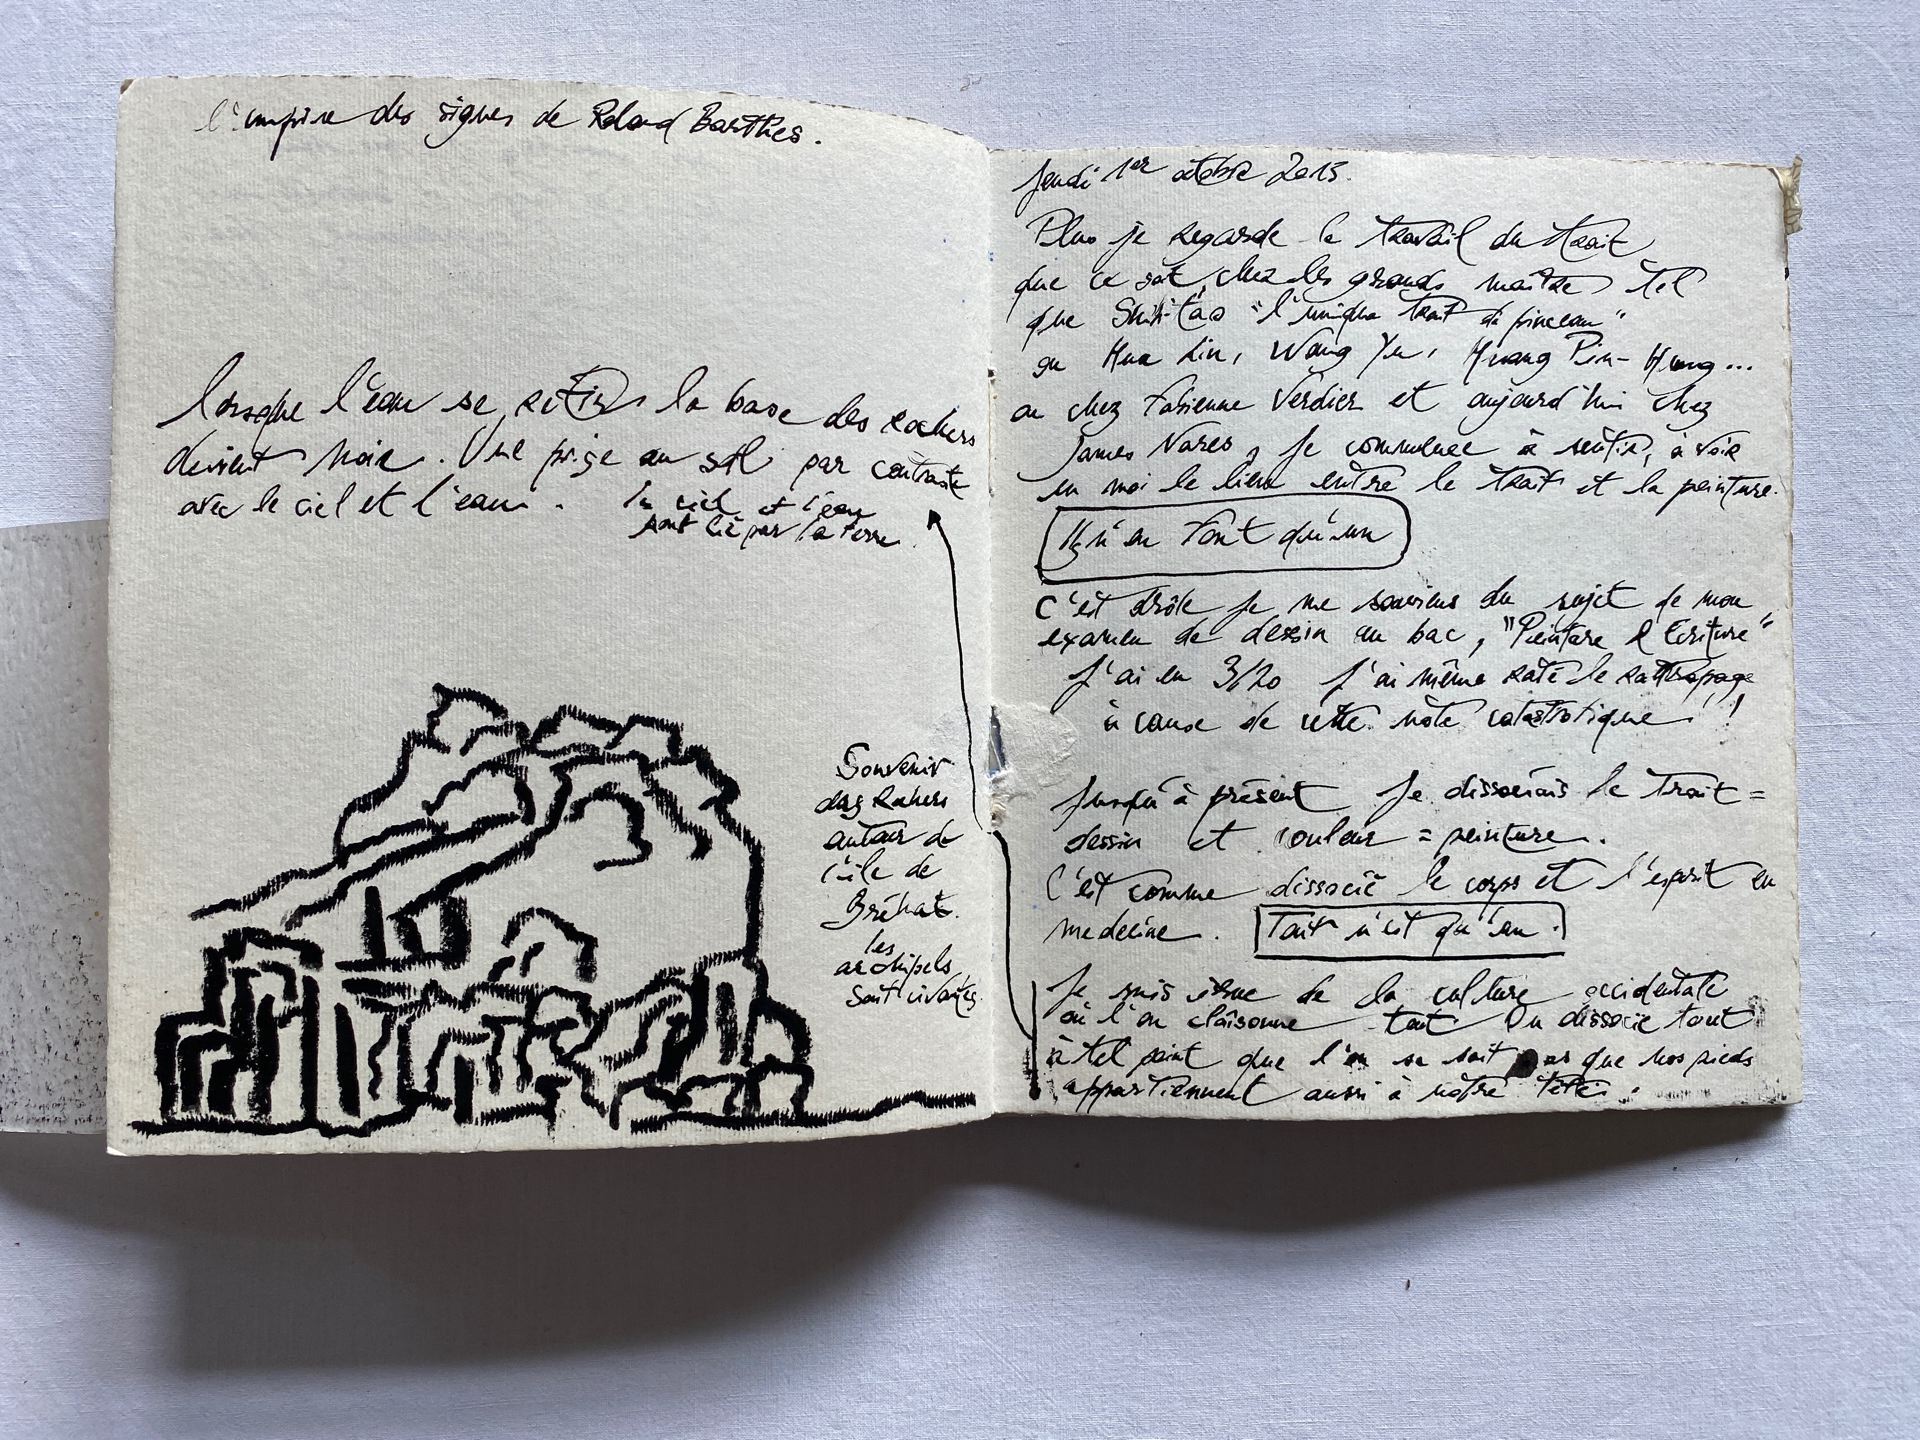 l'empire des signes de Roland Barthes.
lorsque l'eau se retire la base des rochers
devient noire. Une prise au sol par contraste
avec le ciel et l'eau.
le ciel et l'eau
sont lié par la terre.
Souvenir
des Rochers
autour de
l'île de
Bréhat.
les
archipels
sont vivantes.
Jeudi 1er octobre 2015.
Plus je regarde le travail du trait
que ce soit chez les grands maîtres tel
que Shih-t'ao "l'unique trait de pinceau"
ou Hua Lin, Wang Yu, Huang Pin-Hung...
ou chez Fabienne Verdier et aujourd'hui chez
James Nares, je commence à sentir, à voir
en moi le lien entre le trait et la peinture.
Ils n'en font qu'un
C'est drôle je me souviens du sujet de mon
examen de dessin au bac, "Peinture & Ecriture"
J'ai eu 3/20 J'ai même raté le rattrapage
à cause de cette note catastrofique !
Jusqu'à présent je dissociais le trait =
dessin et couleur = peinture.
C'est comme dissocié le corps et l'esprit en
medecine. Tout n'est qu'un.
Je suis issue de la culture occidentale
où l'on cloisonne tout. On dissocie tout
à tel point que l'on ne sait pas que nos pieds
appartiennent aussi à notre tête.